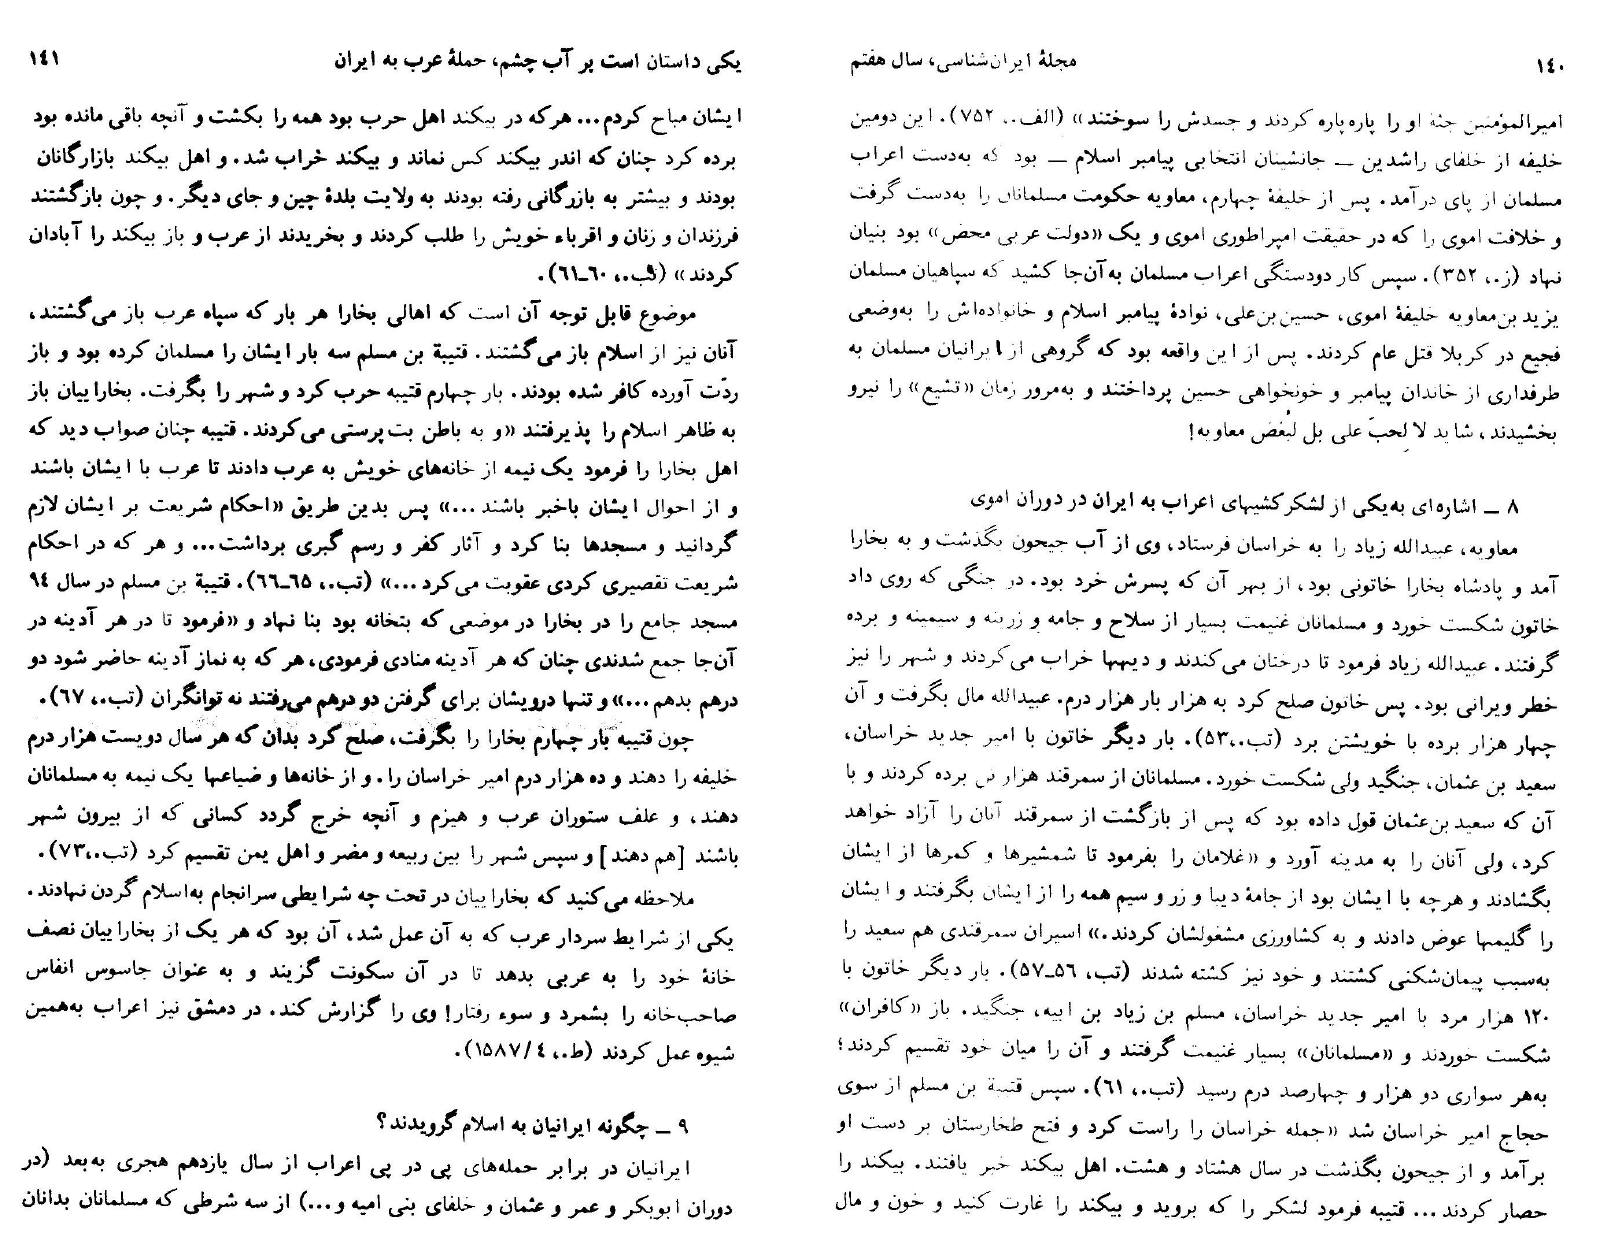 ۱٤۰
مجلهٔ ایران‌شناسی، سال هفتم
امیرالمؤمنین جثهٔ او را پاره‌پاره کردند و جسدش را سوختند» (الف.، ۷۵۲). این دومین
خلیفه از خلفای راشدین ــ جانشینان انتخابی پیامبر اسلام ــ بود که به‌دست اعراب
مسلمان از پای درآمد. پس از خلیفهٔ چهارم، معاویه حکومت مسلمانان را به‌دست گرفت
و خلافت اموی را که در حقیقت امپراطوری اموی و یک «دولت عربی محض» بود بنیان
نهاد (ز.، ۳۵۲). سپس کار دودستگی اعراب مسلمان به‌آن‌جا کشید که سپاهیان مسلمان
یزیدبن‌معاویه خلیفهٔ اموی، حسین‌بن‌علی، نوادهٔ پیامبر اسلام و خانواده‌اش را به‌وضعی
فجیع در کربلا قتل عام کردند. پس از این واقعه بود که گروهی از ایرانیان مسلمان به
طرفداری از خاندان پیامبر و خونخواهی حسین پرداختند و به‌مرور زمان «تشیع» را نیرو
بخشیدند، شاید لا لحبّ علی بل لبُغض معاویه!
۸ ــ اشاره‌ای به‌یکی از لشکرکشیهای اعراب به ایران در دوران اموی
معاویه، عبیدالله زیاد را به خراسان فرستاد، وی از آب جیحون بگذشت و به بخارا
آمد و پادشاه بخارا خاتونی بود، از بهر آن که پسرش خرد بود. در جنگی که روی داد
خاتون شکست خورد و مسلمانان غنیمت بسیار از سلاح و جامه و زرینه و سیمینه و برده
گرفتند. عبیدالله زیاد فرمود تا درختان می‌کندند و دیهها خراب می‌کردند و شهر را نیز
خطر ویرانی بود. پس خاتون صلح کرد به هزار بار هزار درم. عبیدالله مال بگرفت و آن
چهار هزار برده با خویشتن برد (تب.،۵۳). بار دیگر خاتون با امیر جدید خراسان،
سعید بن عثمان، جنگید ولی شکست خورد. مسلمانان از سمرقند هزار تن برده کردند و با
آن که سعیدبن‌عثمان قول داده بود که پس از بازگشت از سمرقند آنان را آزاد خواهد
کرد، ولی آنان را به مدینه آورد و «غلامان را بفرمود تا شمشیرها و کمرها از ایشان
بگشادند و هرچه با ایشان بود از جامهٔ دیبا و زر و سیم همه را از ایشان بگرفتند و ایشان
را گلیمها عوض دادند و به کشاورزی مشغولشان کردند.» اسیران سمرقندی هم سعید را
به‌سبب پیمان‌شکنی کشتند و خود نیز کشته شدند (تب، ۵۶ــ۵۷). بار دیگر خاتون با
۱۲۰ هزار مرد با امیر جدید خراسان، مسلم بن زیاد بن ابیه، جنگید. باز «کافران»
شکست خوردند و «مسلمانان» بسیار غنیمت گرفتند و آن را میان خود تقسیم کردند؛
به‌هر سواری دو هزار و چهارصد درم رسید (تب.، ۶۱). سپس قتیبة بن مسلم از سوی
حجاج امیر خراسان شد «جمله خراسان را راست کرد و فتح طخارستان بر دست او
برآمد و از جیحون بگذشت در سال هشتاد و هشت. اهل بیکند خبر یافتند. بیکند را
حصار کردند... قتیبه فرمود لشکر را که بروید و بیکند را غارت کنید و خون و مال
یکی داستان است پر آب چشم، حملهٔ عرب به ایران
۱٤۱
ایشان مباح کردم... هرکه در بیکند اهل حرب بود همه را بکشت و آنچه باقی مانده بود
برده کرد چنان که اندر بیکند کس نماند و بیکند خراب شد. و اهل بیکند بازارگانان
بودند و بیشتر به بازرگانی رفته بودند به ولایت بلدهٔ چین و جای دیگر. و چون بازگشتند
فرزندان و زنان و اقرباء خویش را طلب کردند و بخریدند از عرب و باز بیکند را آبادان
کردند» (تب.، ۶۰ــ۶۱).
موضوع قابل توجه آن است که اهالی بخارا هر بار که سپاه عرب باز می‌گشتند،
آنان نیز از اسلام باز می‌گشتند. قتیبة بن مسلم سه بار ایشان را مسلمان کرده بود و باز
ردّت آورده کافر شده بودند. بار چهارم قتیبه حرب کرد و شهر را بگرفت. بخاراییان باز
به ظاهر اسلام را پذیرفتند «و به باطن بت‌پرستی می‌کردند. قتیبه چنان صواب دید که
اهل بخارا را فرمود یک نیمه از خانه‌های خویش به عرب دادند تا عرب با ایشان باشند
و از احوال ایشان باخبر باشند ...» پس بدین طریق «احکام شریعت بر ایشان لازم
گردانید و مسجدها بنا کرد و آثار کفر و رسم گبری برداشت... و هر که در احکام
شریعت تقصیری کردی عقوبت می‌کرد ...» (تب.، ۶۵ــ۶۶). قتیبة بن مسلم در سال ۹٤
مسجد جامع را در بخارا در موضعی که بتخانه بود بنا نهاد و «فرمود تا در هر آدینه در
آن‌جا جمع شدندی چنان که هر آدینه منادی فرمودی، هر که به نماز آدینه حاضر شود دو
درهم بدهم ...» و تنها درویشان برای گرفتن دو درهم می‌رفتند نه توانگران (تب.، ۶۷).
چون قتیبه بار چهارم بخارا را بگرفت، صلح کرد بدان که هر سال دویست هزار درم
خلیفه را دهند و ده هزار درم امیر خراسان را. و از خانه‌ها و ضیاعها یک نیمه به مسلمانان
دهند، و علف ستوران عرب و هیزم و آنچه خرج گردد کسانی که از بیرون شهر
باشند [هم دهند] و سپس شهر را بین ربیعه و مضر و اهل یمن تقسیم کرد (تب.،۷۳).
ملاحظه می‌کنید که بخاراییان در تحت چه شرایطی سرانجام به‌اسلام گردن نهادند.
یکی از شرایط سردار عرب که به آن عمل شد، آن بود که هر یک از بخاراییان نصف
خانهٔ خود را به عربی بدهد تا در آن سکونت گزیند و به عنوان جاسوس انفاس
صاحب‌خانه را بشمرد و سوء رفتار! وی را گزارش کند. در دمشق نیز اعراب به‌همین
شیوه عمل کردند (ط.، ٤/۱۵۸۷).
۹ ــ چگونه ایرانیان به اسلام گرویدند؟
ایرانیان در برابر حمله‌های پی در پی اعراب از سال یازدهم هجری به‌بعد (در
دوران ابوبکر و عمر و عثمان و خلفای بنی امیه و...) از سه شرطی که مسلمانان بدانان